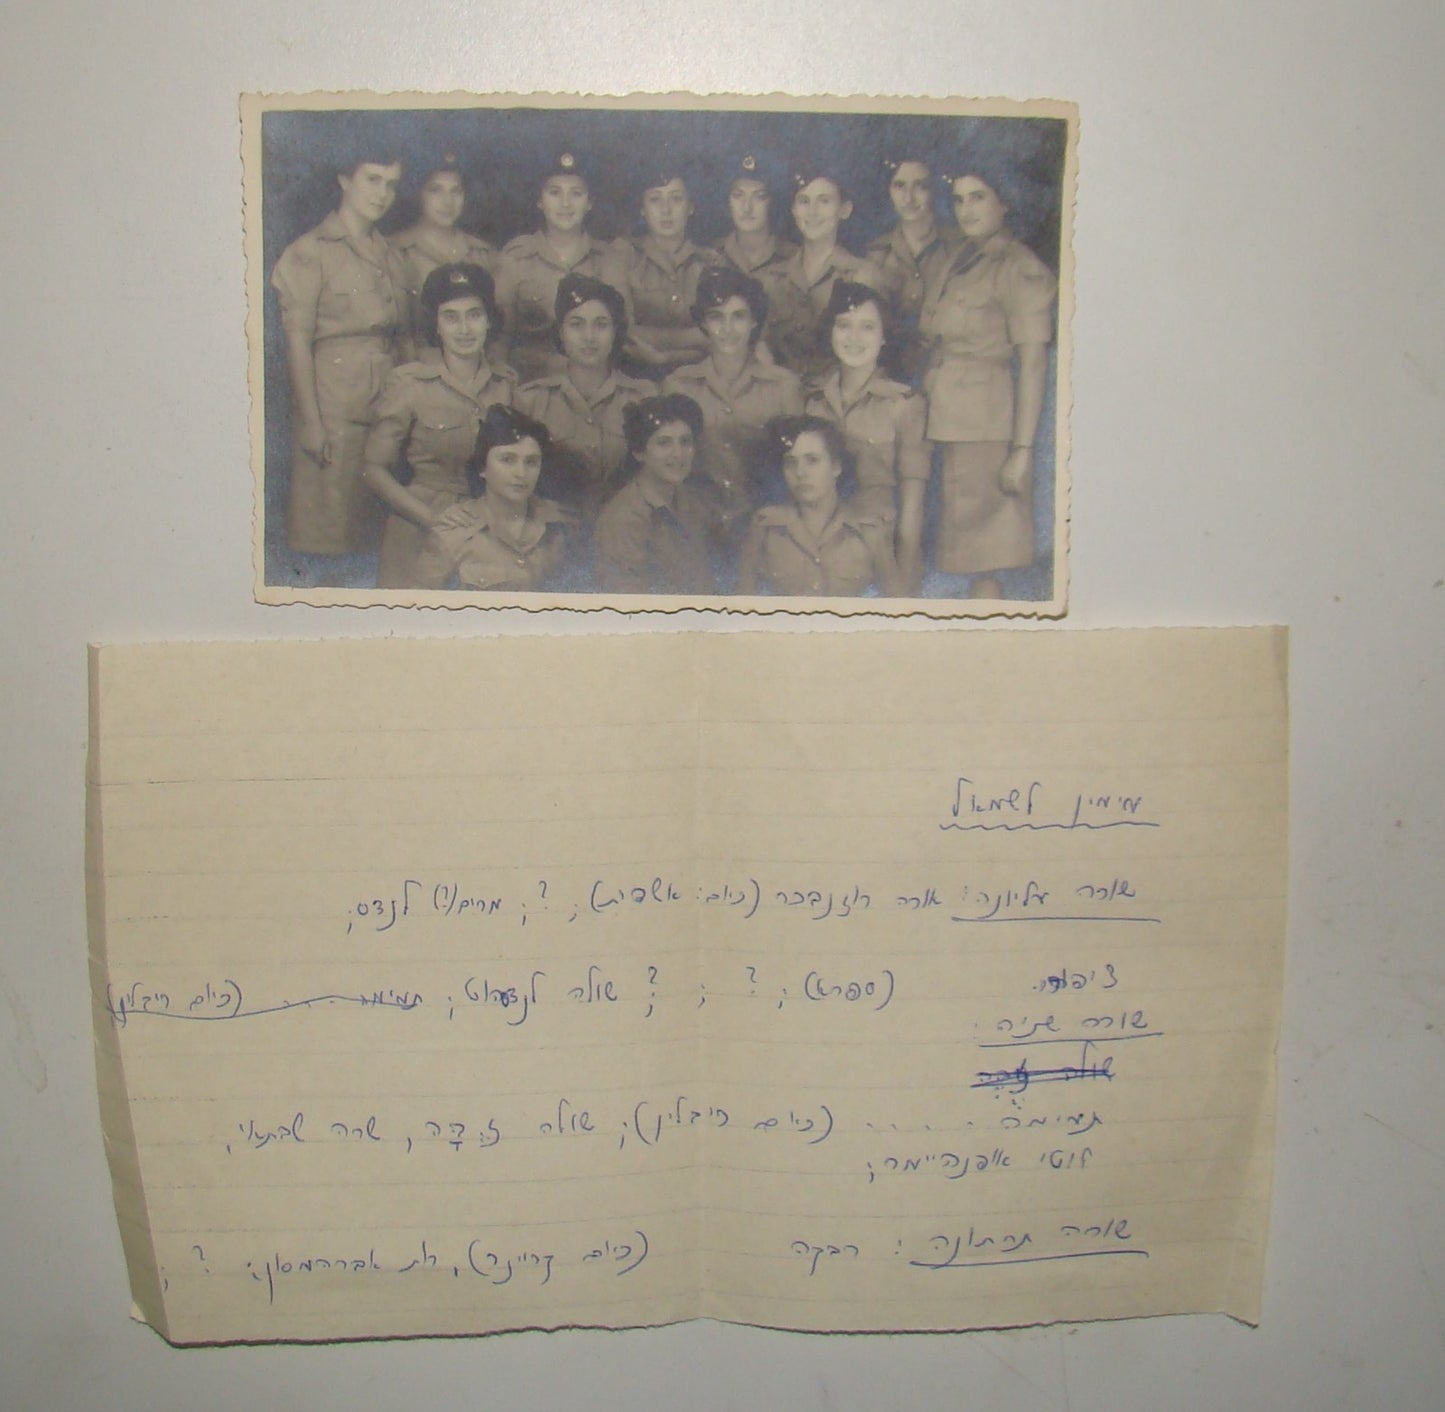 מימין לשמאל
שורה עליונה: אורה רוזנבכר (כיום: אשבית); ?; מרים(?) לנדס;
ציפורה (ספרא); ? ; ?; שולה לנדהוט; תמימה . . . (כיום ריבלין)
שורה שניה:
שולה
תמימה . . . . (כיום ריבלין); שולה זַ'קָה, שרה שבתאי,
לוטי אופנהיימר;
שורה תחתונה: רבקה (כיום קריינר), רות אברהמסון; ? ;